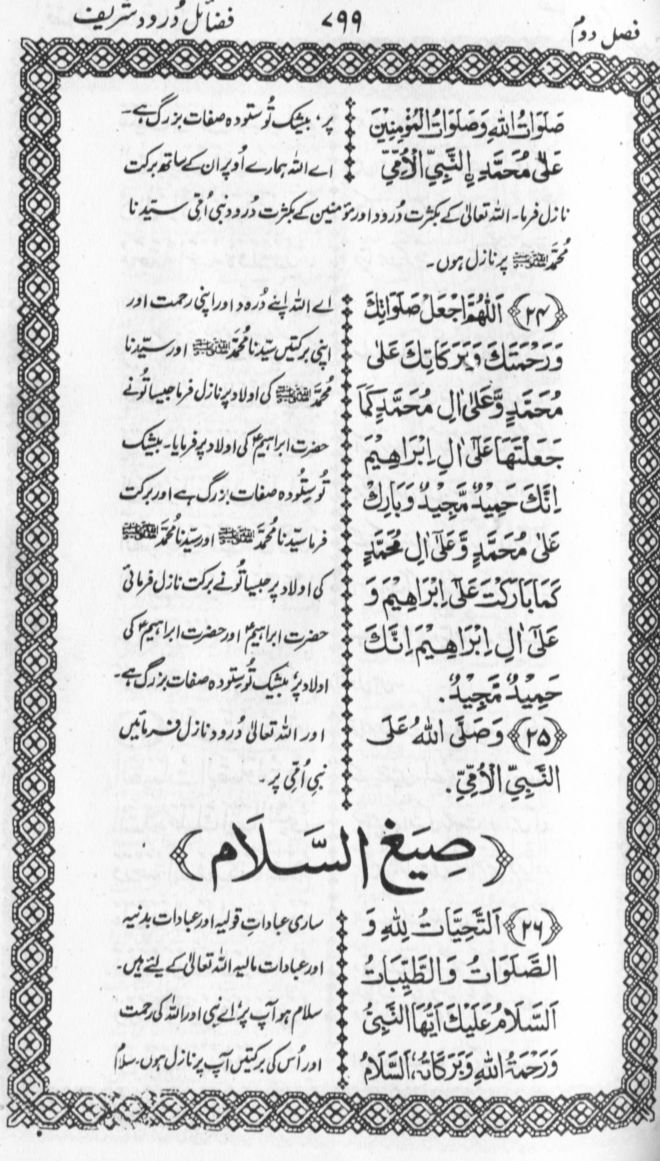 فضائل دُرود شریف
۷۹۹
فصل دوم
صَلَوَاتُ اللهِ وَصَلَوَاتُ الْمُؤْمِنِيْنَ
عَلٰى مُحَمَّدِ ِۨالنَّبِيِّ الْاُمِّيِّ
پر، بیشک تُو ستودہ صفات بزرگ ہے۔
اے اللہ ہمارے اُوپر ان کے ساتھ برکت
نازل فرما۔ اللہ تعالیٰ کے بکثرت دُرود اور مؤمنین کے بکثرت درود نبی اُمّی سیّدنا
مُحمّد ﷺ پر نازل ہوں۔
﴿۲۴﴾ اَللّٰهُمَّ اجْعَلْ صَلَوَاتِكَ
وَرَحْمَتَكَ وَبَرَكَاتِكَ عَلٰى
مُحَمَّدٍ وَّعَلٰى اٰلِ مُحَمَّدٍ كَمَا
جَعَلْتَهَا عَلٰى اٰلِ اِبْرَاهِيْمَ
اِنَّكَ حَمِيْدٌ مَّجِيْدٌ وَبَارِكْ
عَلٰى مُحَمَّدٍ وَّعَلٰى اٰلِ مُحَمَّدٍ
كَمَا بَارَكْتَ عَلٰى اِبْرَاهِيْمَ وَ
عَلٰى اٰلِ اِبْرَاهِيْمَ اِنَّكَ
حَمِيْدٌ مَّجِيْدٌ.
اے اللہ اپنے دُرود اور اپنی رحمت اور
اپنی برکتیں سیّدنا مُحمّد ﷺ اور سیّدنا
مُحمّد ﷺ کی اولاد پر نازل فرما جیسا تُونے
حضرت ابراہیمؑ کی اولاد پر فرمایا۔ بیشک
تُو ستُودہ صفات بزرگ ہے اور برکت
فرما سیّدنا مُحمّد ﷺ اور سیّدنا مُحمّد ﷺ
کی اولاد پر جیسا تُونے برکت نازل فرمائی
حضرت ابراہیمؑ اور حضرت ابراہیمؑ کی
اولاد پر، بیشک تُو ستودہ صفات بزرگ ہے۔
﴿۲۵﴾ وَصَلَّى اللهُ عَلَى
النَّبِيِّ الْاُمِّيِّ.
اور اللہ تعالیٰ دُرود نازل فرمائیں
نبی اُمّی پر
﴿صِيَغُ السَّلَام﴾
﴿۲۶﴾ اَلتَّحِيَّاتُ لِلهِ وَ
الصَّلَوَاتُ وَالطَّيِّبَاتُ
اَلسَّلَامُ عَلَيْكَ اَيُّهَا النَّبِيُّ
وَرَحْمَةُ اللهِ وَبَرَكَاتُهٗ، اَلسَّلَامُ
ساری عباداتِ قولیہ اور عبادات بدنیہ
اور عبادات مالیہ اللہ تعالیٰ کے لئے ہیں۔
سلام ہو آپ پر، اے نبی اور اللہ کی رحمت
اور اُس کی برکتیں آپ پر نازل ہوں، سلام